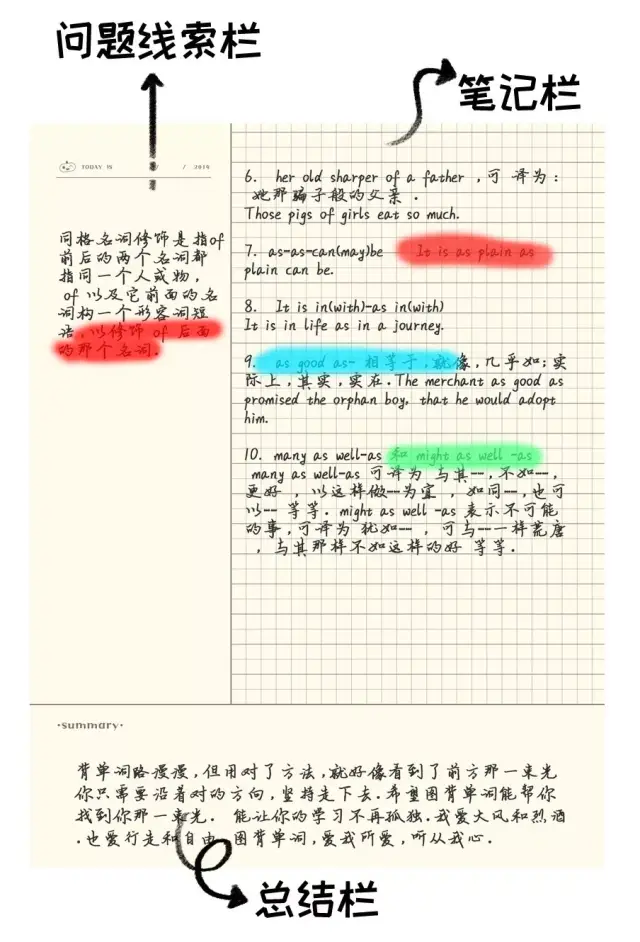 问题线索栏
笔记栏
TODAY IS / / 2019
同格名词修饰是指of
前后的两个名词都
指同一个人或物，
of 以及它前面的名
词构一个形容词短
语,以修饰 of 后面
的那个名词.
6. her old sharper of a father ,可 译为:
她那骗子般的父亲 .
Those pigs of girls eat so much.
7. as-as-can(may)be It is as plain as
plain can be.
8. It is in(with)-as in(with)
It is in life as in a journey.
9. as good as- 相等于,就像,几乎如;实
际上,其实,实在.The merchant as good as
promised the orphan boy, that he would adopt
him.
10. many as well-as 和 might as well -as
many as well-as 可译为 与其--,不如--,
更好 , 以这样做--为宜 , 如同--,也可
以-- 等等. might as well -as 表示不可能
的事,可译为 犹如-- , 可与--一样荒唐
, 与其那样不如这样的好 等等.
·summary·
背单词路漫漫,但用对了方法,就好像看到了前方那一束光
你只需要沿着对的方向,坚持走下去.希望图背单词能帮你
找到你那一束光. 能让你的学习不再孤独.我爱大风和烈酒
.也爱行走和自由. 图背单词,爱我所爱,听从我心.
总结栏